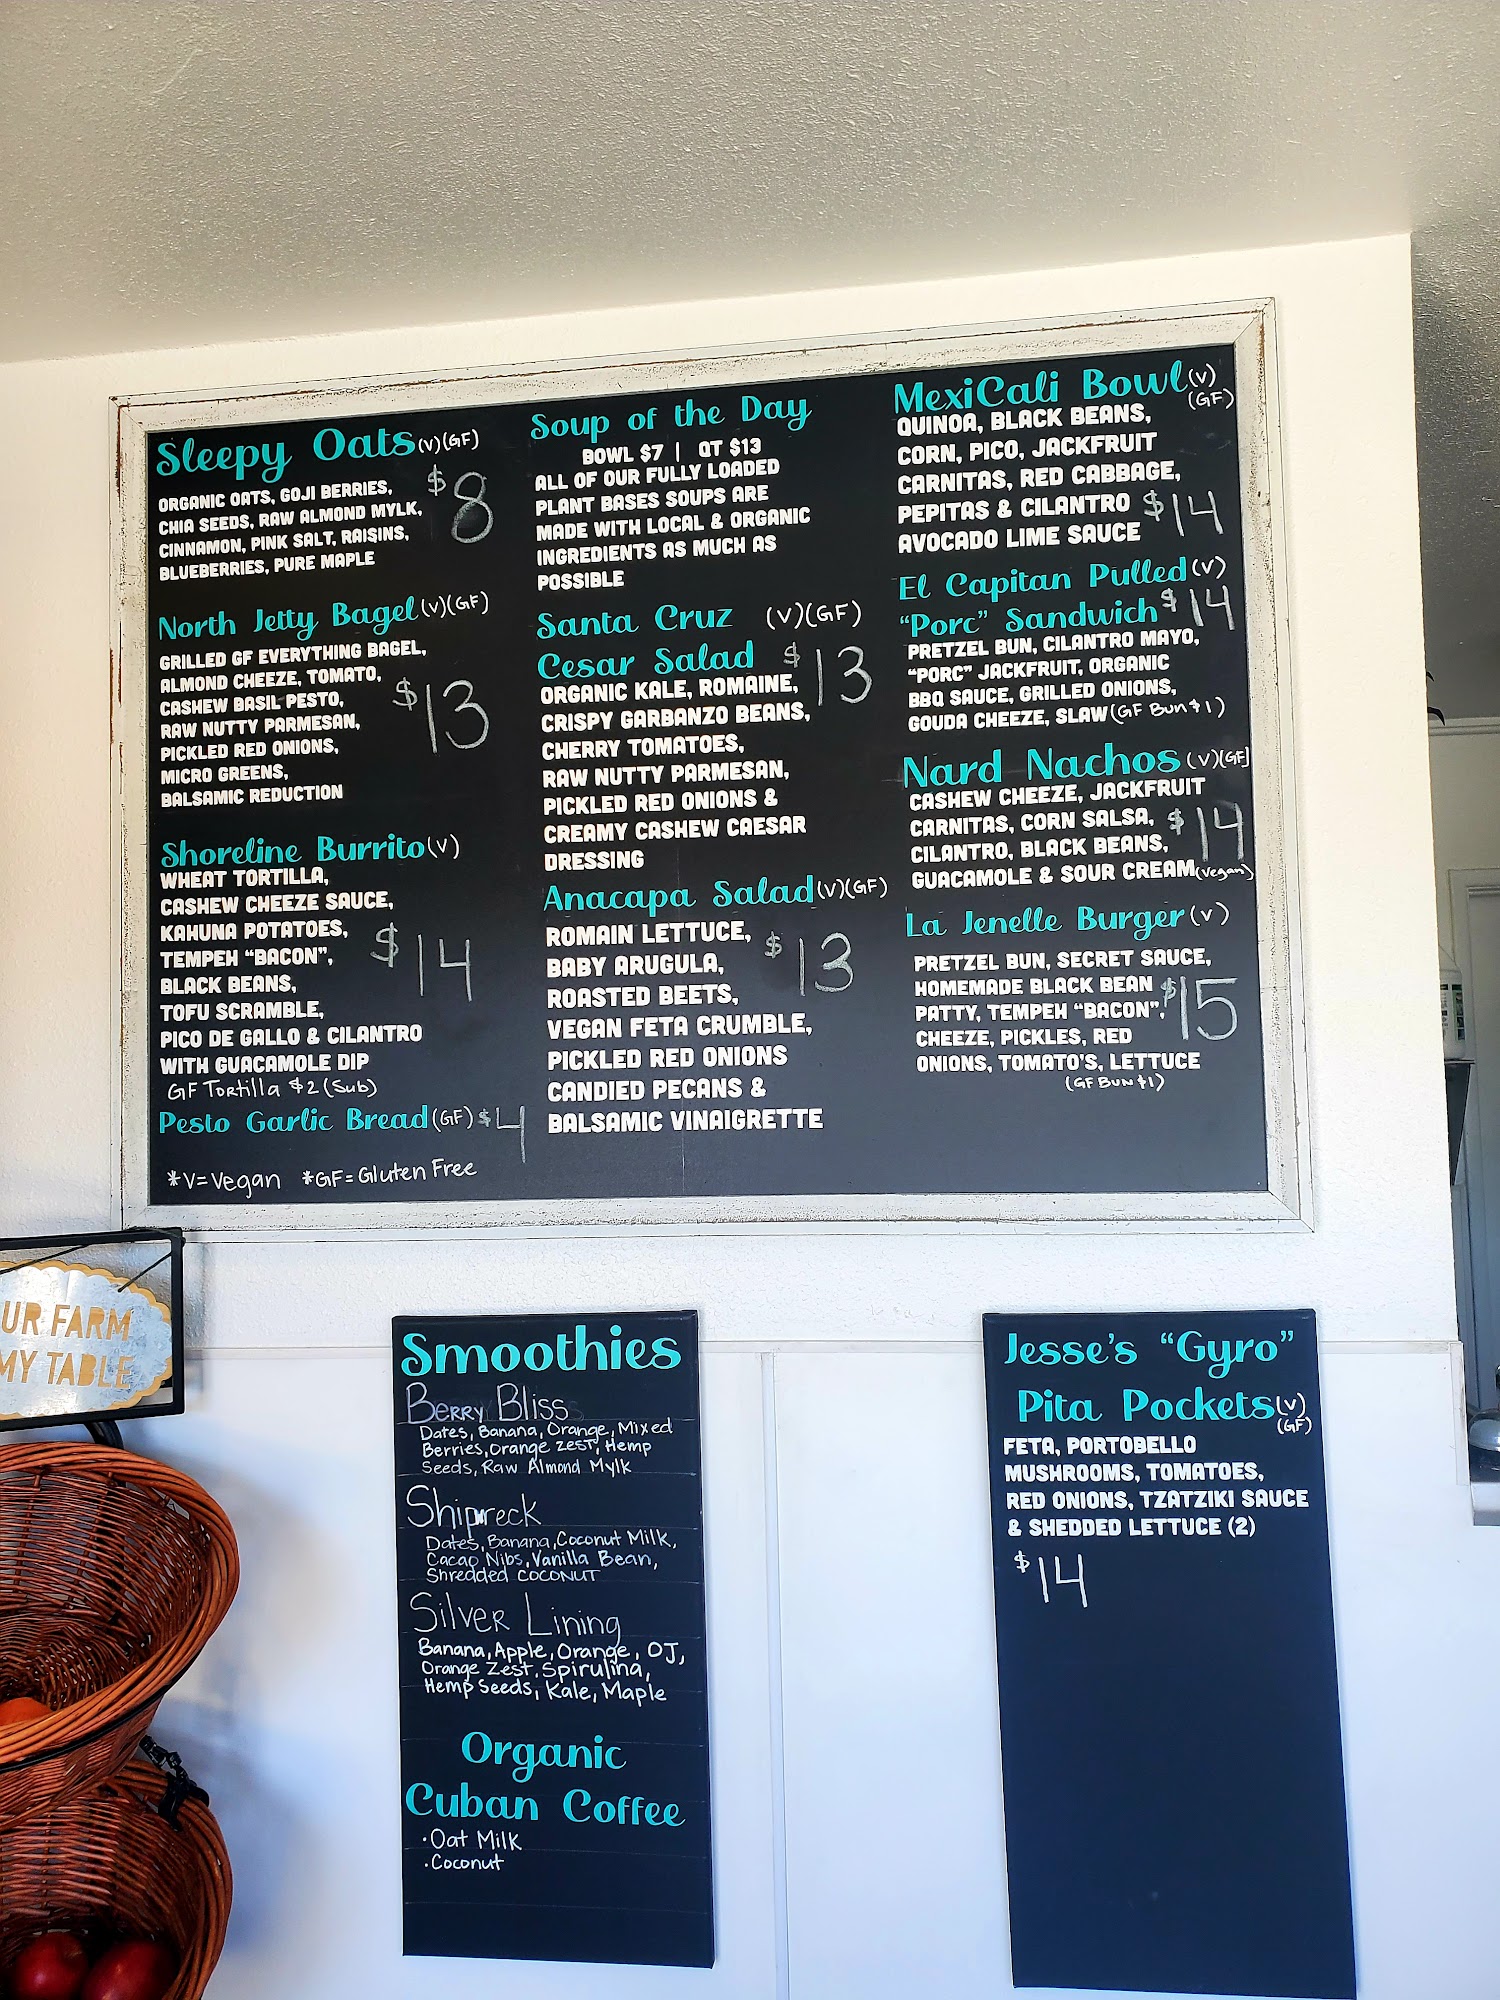 Sleepy Oats (V)(GF)
$8
ORGANIC OATS, GOJI BERRIES,
CHIA SEEDS, RAW ALMOND MYLK,
CINNAMON, PINK SALT, RAISINS,
BLUEBERRIES, PURE MAPLE
North Jetty Bagel (V)(GF)
GRILLED GF EVERYTHING BAGEL,
ALMOND CHEEZE, TOMATO,
CASHEW BASIL PESTO,
$13
RAW NUTTY PARMESAN,
PICKLED RED ONIONS,
MICRO GREENS,
BALSAMIC REDUCTION
Shoreline Burrito (V)
WHEAT TORTILLA,
CASHEW CHEEZE SAUCE,
KAHUNA POTATOES,
TEMPEH "BACON",
$14
BLACK BEANS,
TOFU SCRAMBLE,
PICO DE GALLO & CILANTRO
WITH GUACAMOLE DIP
GF Tortilla $2 (Sub)
Pesto Garlic Bread (GF) $4
*V=Vegan *GF=Gluten Free
Soup of the Day
BOWL $7 | QT $13
ALL OF OUR FULLY LOADED
PLANT BASES SOUPS ARE
MADE WITH LOCAL & ORGANIC
INGREDIENTS AS MUCH AS
POSSIBLE
Santa Cruz (V)(GF)
Cesar Salad $13
ORGANIC KALE, ROMAINE,
CRISPY GARBANZO BEANS,
CHERRY TOMATOES,
RAW NUTTY PARMESAN,
PICKLED RED ONIONS &
CREAMY CASHEW CAESAR
DRESSING
Anacapa Salad (V)(GF)
ROMAIN LETTUCE,
$13
BABY ARUGULA,
ROASTED BEETS,
VEGAN FETA CRUMBLE,
PICKLED RED ONIONS
CANDIED PECANS &
BALSAMIC VINAIGRETTE
MexiCali Bowl (V)
(GF)
QUINOA, BLACK BEANS,
CORN, PICO, JACKFRUIT
CARNITAS, RED CABBAGE,
PEPITAS & CILANTRO $14
AVOCADO LIME SAUCE
El Capitan Pulled (V)
"Porc" Sandwich $14
PRETZEL BUN, CILANTRO MAYO,
"PORC" JACKFRUIT, ORGANIC
BBQ SAUCE, GRILLED ONIONS,
GOUDA CHEEZE, SLAW (GF Bun $1)
Nard Nachos (V)(GF)
CASHEW CHEEZE, JACKFRUIT
CARNITAS, CORN SALSA, $14
CILANTRO, BLACK BEANS,
GUACAMOLE & SOUR CREAM (vegan)
La Jenelle Burger (V)
PRETZEL BUN, SECRET SAUCE,
HOMEMADE BLACK BEAN $15
PATTY, TEMPEH "BACON",
CHEEZE, PICKLES, RED
ONIONS, TOMATO'S, LETTUCE
(GF BUN $1)
UR FARM
MY TABLE
Smoothies
Berry Bliss
Dates, Banana, Orange, Mixed
Berries, Orange Zest, Hemp
Seeds, Raw Almond Mylk
Shipwreck
Dates, Banana, Coconut Milk,
Cacao Nibs, Vanilla Bean,
Shredded COCONUT
Silver Lining
Banana, Apple, Orange, OJ,
Orange Zest, Spirulina,
Hemp Seeds, Kale, Maple
Organic
Cuban Coffee
•Oat Milk
•Coconut
Jesse's "Gyro"
Pita Pockets (V)
(GF)
FETA, PORTOBELLO
MUSHROOMS, TOMATOES,
RED ONIONS, TZATZIKI SAUCE
& SHEDDED LETTUCE (2)
$14